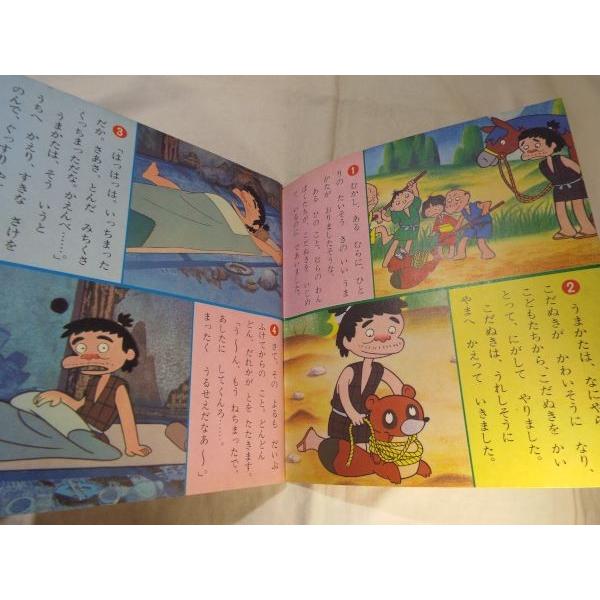 1
むかし、ある むらに、ひと
りの たいそう きの いい うま
かたが おりましたそうな。
ある ひの こと、むらの わん
ぱくたちが、こだぬきを いじめ
ているのに であいました。
2
うまかたは、なにやら
こだぬきが かわいそうに なり、
こどもたちから、こだぬきを かい
とって、にがして やりました。
こだぬきは、うれしそうに
やまへ かえって いきました。
3
「はっはっは。いっちまった
だか。さあさ、とんだ みちくさ
くっちまっただな。かえんべ……。」
うまかたは、そう いうと
うちへ かえり、すきな さけを
のんで、ぐっすり
4
さて、その よるも だいぶ
ふけてからの こと。どんどん
どん、だれかが とを たたきます。
「う〜ん、もう ねちまったで、
あしたに してくんろ……。
まったく うるせえだなあ〜。」